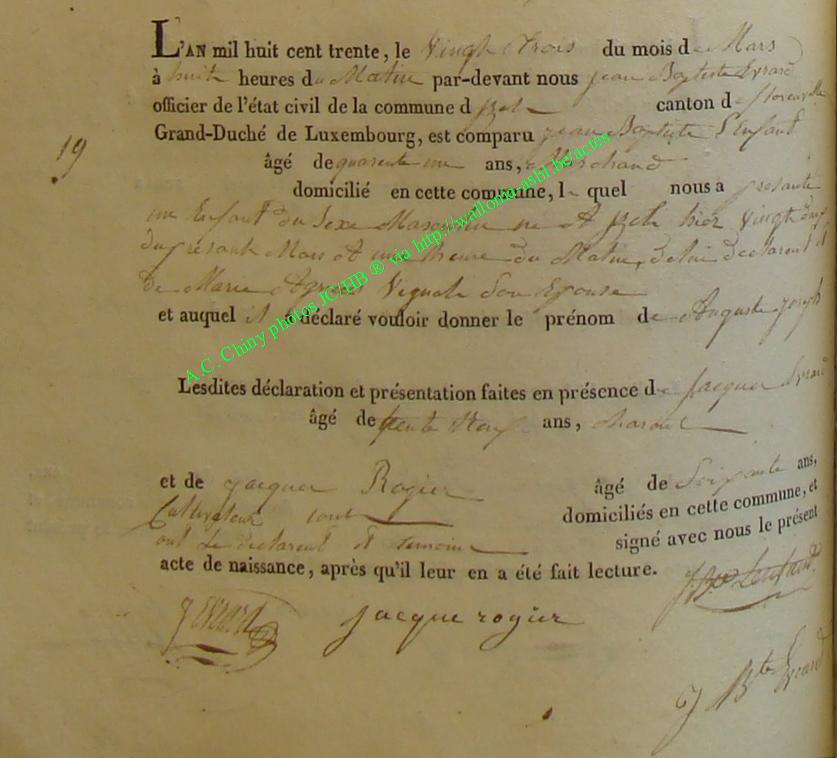 L'AN mil huit cent trente, le Vingt trois du mois de Mars
à huit heures du Matin par-devant nous jean Baptiste Evrard
officier de l'état civil de la commune d Izel canton de florenville
Grand-Duché de Luxembourg, est comparu jean Baptiste L'Enfant
19
âgé de quarente un ans, Marchand
domicilié en cette commune, le quel nous a presenté
un Enfant du Sexe Masculin né A Izel hier Vingt deux
du présent Mois A une heure du Matin, de lui declarent et
De Marie Agnes Son Epouse
et auquel il a déclaré vouloir donner le prénom de Auguste joseph
Lesdites déclaration et présentation faites en présence de Jacques Evrard
âgé de trente Neuf ans,
et de jacques Rogier âgé de Soixante ans,
Cultivateur tout domiciliés en cette commune, et
ont le declarent et temoins signé avec nous le présent
acte de naissance, après qu'il leur en a été fait lecture.
J Bte Lenfant
J Evrard jacque rogier
J Bte Evrard
A.C. Chiny photos JCHB ® via http://wallonia-asbl.be/actes